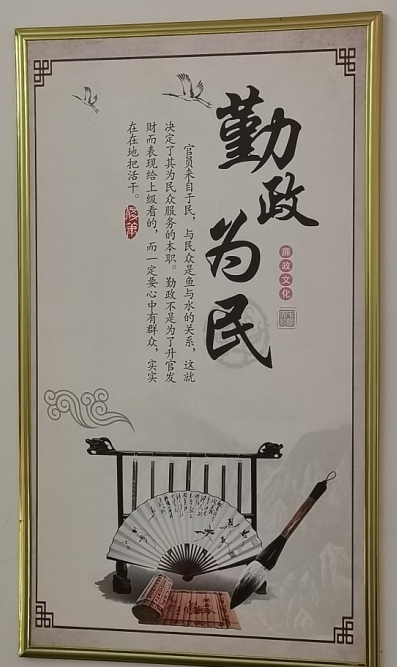 勤政为民
廉政文化
官员来自于民，与民众是鱼与水的关系，这就
决定了其为民众服务的本职。勤政不是为了升官发
财而表现给上级看的，而一定要心中有群众，实实
在在地把活干。